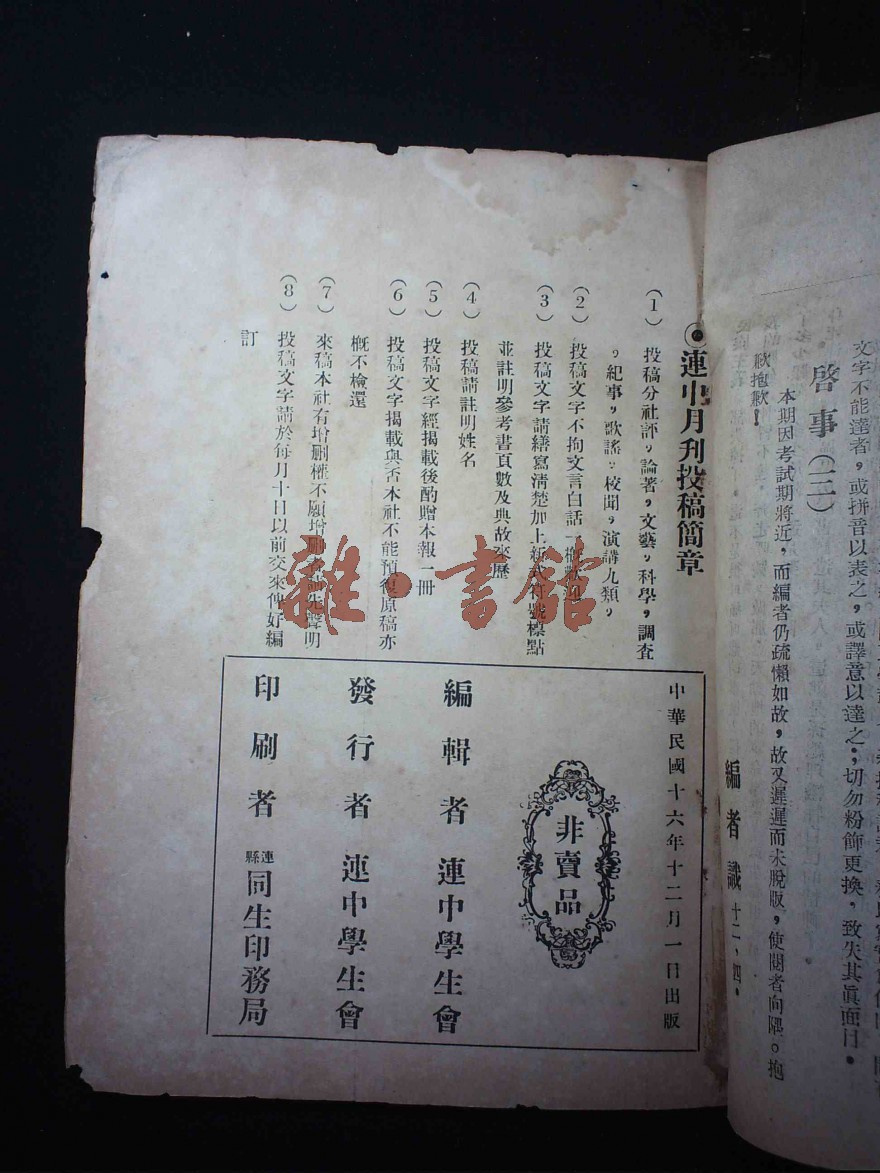 文字不能達者，或拼音以表之，或譯意以達之；切勿粉飾更換，致失其眞面目。
啓事（二）
本期因考試期將近，而編者仍疏懶如故，故又遲遲而未脫版，使閱者向隅。抱
歉抱歉！
編者識 十二、四。
◉連中月刋投稿簡章
（1）投稿分社評，論著，文藝，科學，調查
，紀事，歌謠，校聞，演講九類，
（2）投稿文字不拘文言白話一概歡迎
（3）投稿文字請繕寫淸楚加上新式符號標點
並註明參考書頁數及典故來歷
（4）投稿請註明姓名
（5）投稿文字經揭載後酌贈本報一冊
（6）投稿文字揭載與否本社不能預復原稿亦
概不檢還
（7）來稿本社有增删權不願增删者請先聲明
（8）投稿文字請於每月十日以前交來俾好編
訂
中華民國十六年十二月一日出版
非賣品
編輯者 連中學生會
發行者 連中學生會
印刷者 連縣同生印務局
雜·書館